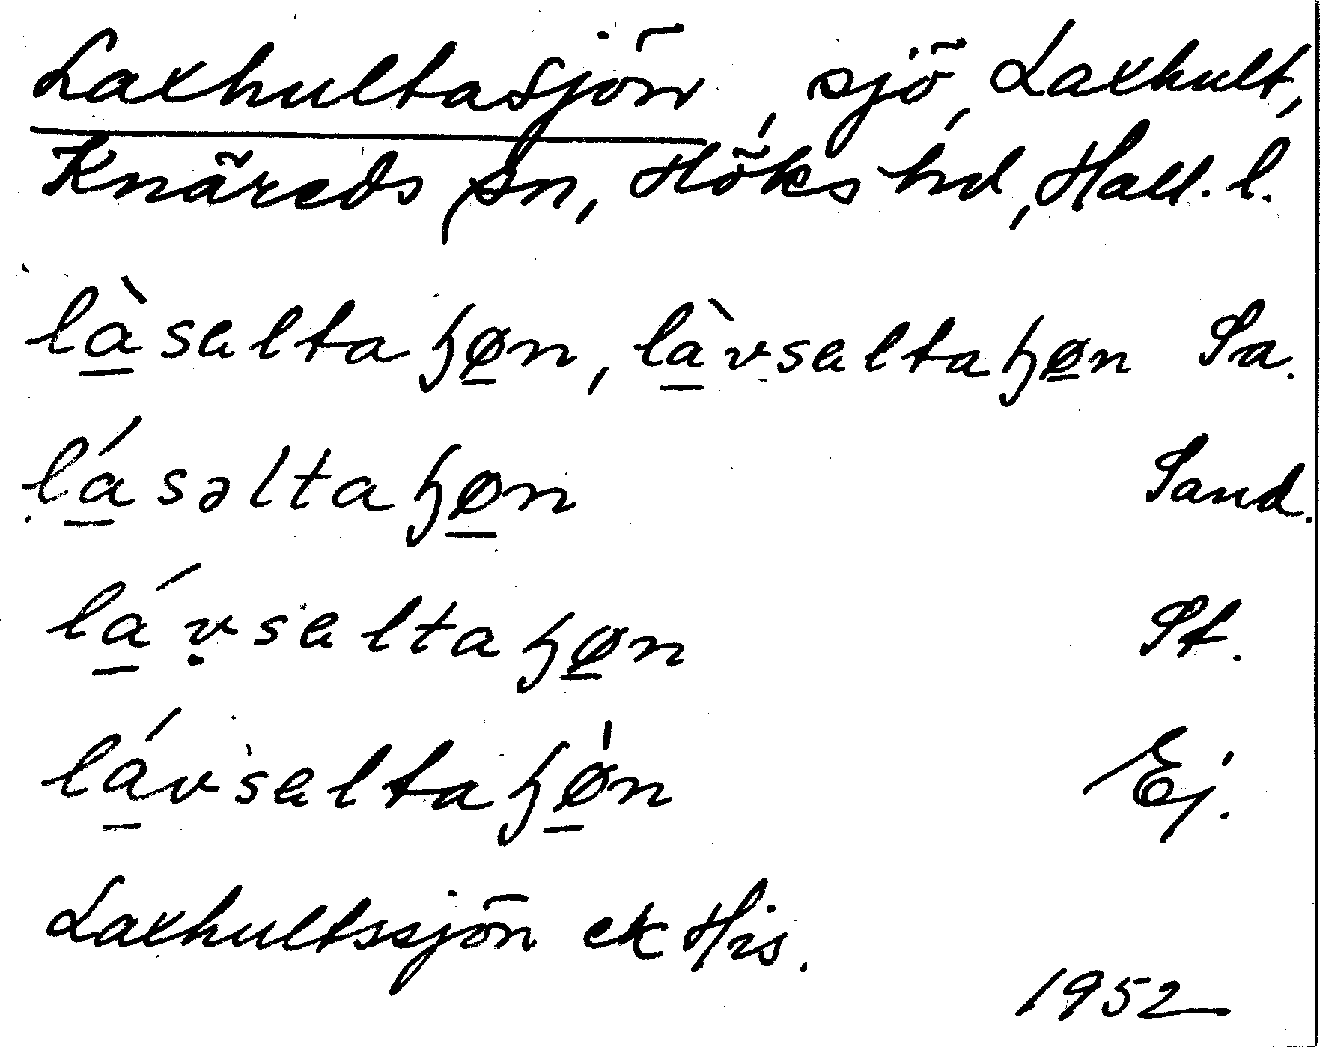 Laxhultasjön, sjö, Laxhult,
Knäreds sn, Höks hd, Hall. l.
là̱saltaɧø̱n, là̱vsaltaɧø̱n Sa.
lá̱səltaɧø̱n Sand.
lá̱ṿsaltaɧø̱n St.
lá̱vsaltaɧø̱̍n Ej.
Laxhultssjön ek His.
1952